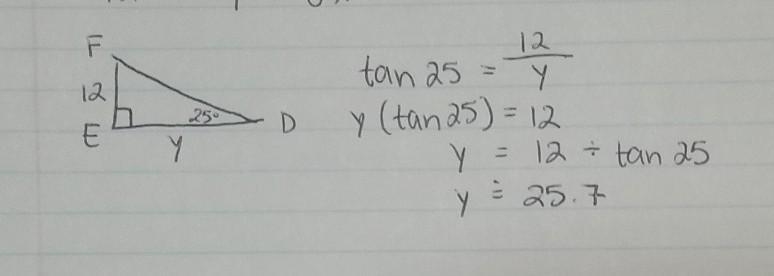 F
12
E
25°
D
y
tan 25 = 12/y
y (tan 25) = 12
y = 12 ÷ tan 25
y ≐ 25.7